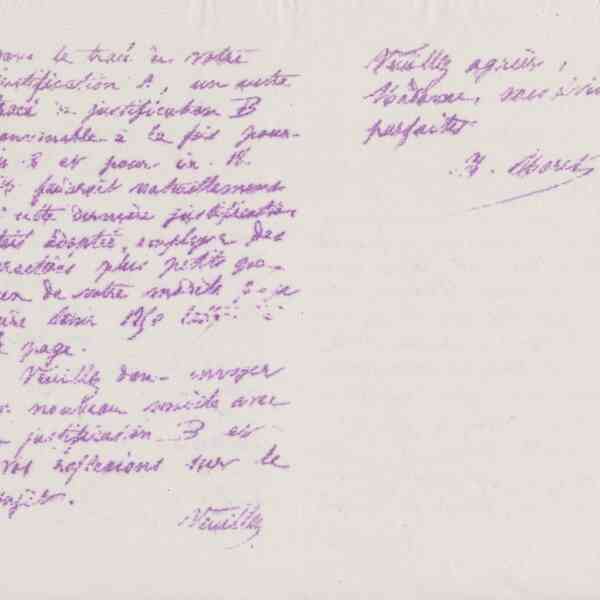 dans le tracé de votre
justification A, un autre
tracé de justification B
convenable à la fois pour
in-8 et pour in-18.
Il faudrait naturellement
si cette dernière justification
était adoptée, employer des
caractères plus petits que
ceux de votre modèle
la page.
Veuillez donc envoyer
nouveau modèle avec
la justification B et
vos réflexions sur le
sujet.
Veuillez
Veuillez agréer,
parfaits